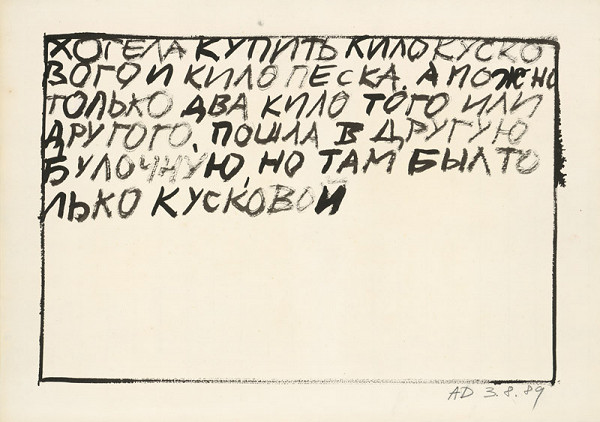 ХОТЕЛА КУПИТЬ КИЛО КУСКО
ВОГО И КИЛО ПЕСКА, А МОЖНО
ТОЛЬКО ДВА КИЛО ТОГО ИЛИ
ДРУГОГО, ПОШЛА В ДРУГУЮ
БУЛОЧНУЮ, НО ТАМ БЫЛ ТО
ЛЬКО КУСКОВОЙ
AD 3.8.89